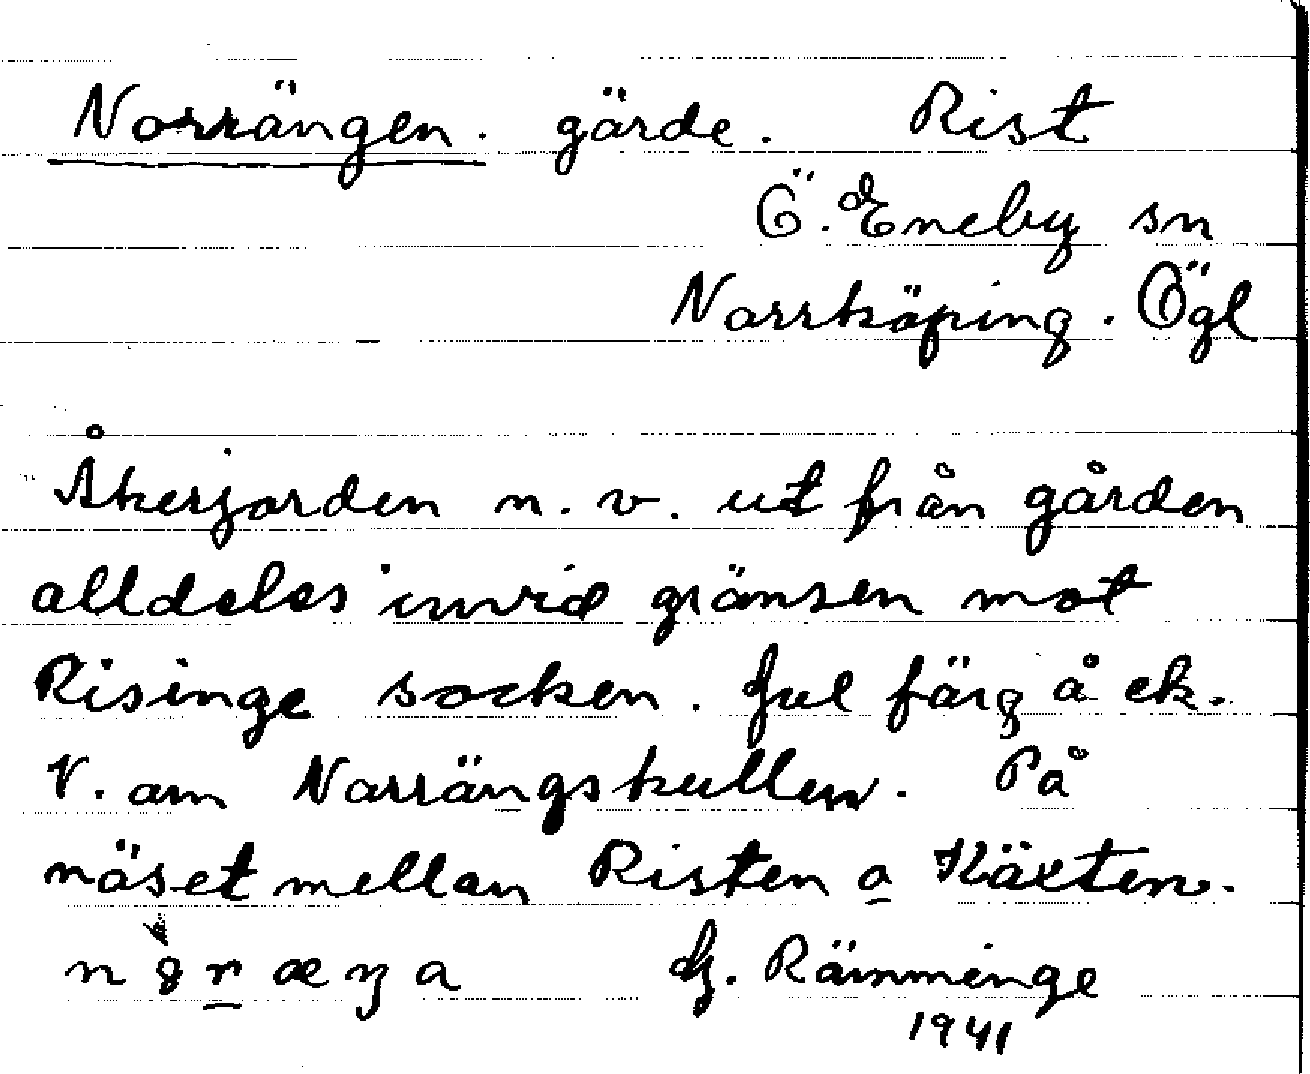 Norrängen. gärde. Rist
Ö. Eneby sn
Norrköping. Ögl
Åkerjorden n. v. ut från gården
alldeles invid gränsen mot
Risinge socken. Gul färg å ek.
V. om Norrängskullen. På
näset mellan Risten o Käxten.
G. Rämminge
1941